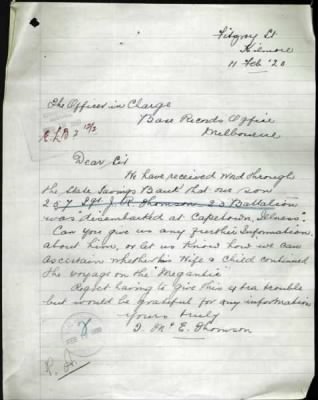 Fitzroy St.
Kilmore
11 Feb '20
The Officer in Charge
Base Records Office
Melbourne
Dear Sir
We have received word through
the State Savings Bank that our son
237 Sgt J. R. Thomson 23 Battalion
was "disembarked at Capetown, Illness".
Can you give us any further Information
about him, or let us know how we can
ascertain whether his Wife & Child continued
the voyage on the "Megantic"
Regret having to give this extra trouble
but would be grateful for any information
Yours truly
McE. Thomson